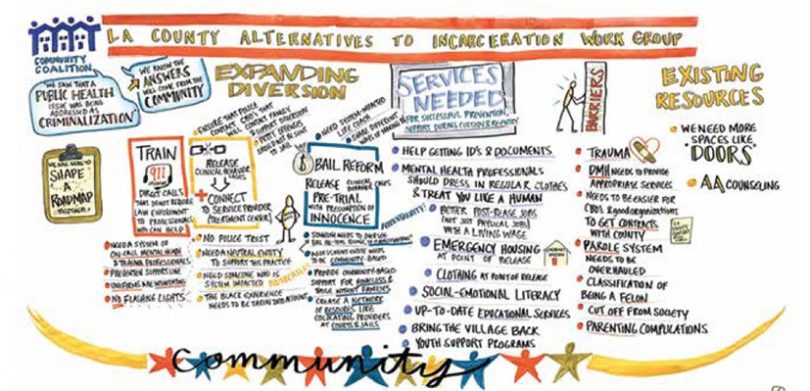 LA COUNTY ALTERNATIVES TO INCARCERATION WORK GROUP
COMMUNITY
COALITION
"WE SAW THAT A
PUBLIC HEALTH
ISSUE WAS BEING
ADDRESSED AS
CRIMINALIZATION"
WE KNOW THE
ANSWERS
WILL COME FROM THE
COMMUNITY
WE ARE HERE TO
SHAPE
A
ROADMAP
TOGETHER
EXPANDING
DIVERSION
ENSURE THAT POLICE
CONTACT
WILL CONTACT FAMILY
& SUPPORT DIVERSION
PETTY OFFENSES
SHOULD NOT BE SENT
TO JAIL
NEED SYSTEM-IMPACTED
LIFE COACH
SHARE DIFFERENT
WAYS OF
TRAIN
911
DISPATCH
CALLS
THAT DON'T REQUIRE
LAW ENFORCEMENT
TO PROFESSIONALS
WHO CAN HELP
NEED A SYSTEM OF
ON-CALL MENTAL HEALTH
& TRAUMA PROFESSIONALS
PREVENTION SUPPORT LINE
UNIFORMS ARE
NO FLASHING LIGHTS
RELEASE
CLINICAL BEHAVIOR
CONNECT
TO SERVICE PROVIDER
TREATMENT CENTERS
NO POLICE TRUST
NEED A NEUTRAL ENTITY
TO SUPPORT THIS PRACTICE
NEED SOMEONE WHO IS
SYSTEM IMPACTED
ADVOCATE
THE BLACK EXPERIENCE
NEEDS TO BE TAKEN INTO ACCOUNT
$ BAIL REFORM
RELEASE CLINICAL
CASES
PRE-TRIAL
WITH PRESUMPTION OF
INNOCENCE
SOMEONE NEEDS TO OVERSEE
NEEDS
TO BE COMMUNITY-BASED
PROVIDE COMMUNITY-BASED
SUPPORT FOR HOMELESS &
THOSE WITHOUT FAMILIES
CREATE A NETWORK
OF RESOURCES LIKE
COLOCATING PROVIDERS
AT COURTS & JAILS
SERVICES
NEEDED
FOR SUCCESSFUL PREVENTION,
SUPPORT DURING CUSTODY & RE-ENTRY
HELP GETTING ID'S & DOCUMENTS
MENTAL HEALTH PROFESSIONALS
SHOULD DRESS IN REGULAR CLOTHES
& TREAT YOU LIKE A HUMAN
BETTER POST-RELEASE JOBS
(NOT JUST PHYSICAL JOBS)
WITH A LIVING WAGE
EMERGENCY HOUSING
AT POINT OF RELEASE
CLOTHING AT POINT OF RELEASE
SOCIAL-EMOTIONAL LITERACY
UP-TO-DATE EDUCATIONAL SERVICES
BRING THE VILLAGE BACK
YOUTH SUPPORT PROGRAMS
BARRIERS
TRAUMA
DMH NEEDS TO PROVIDE
APPROPRIATE SERVICES
NEEDS TO BE EASIER FOR
CBO'S & GOOD ORGANIZATIONS
TO GET CONTRACTS
WITH COUNTY
PAROLE SYSTEM
NEEDS TO BE
OVERHAULED
CLASSIFICATION OF
BEING A FELON
CUT OFF FROM SOCIETY
PARENTING COMPLICATIONS
EXISTING
RESOURCES
WE NEED MORE
SPACES LIKE
"DOORS"
AA COUNSELING
community